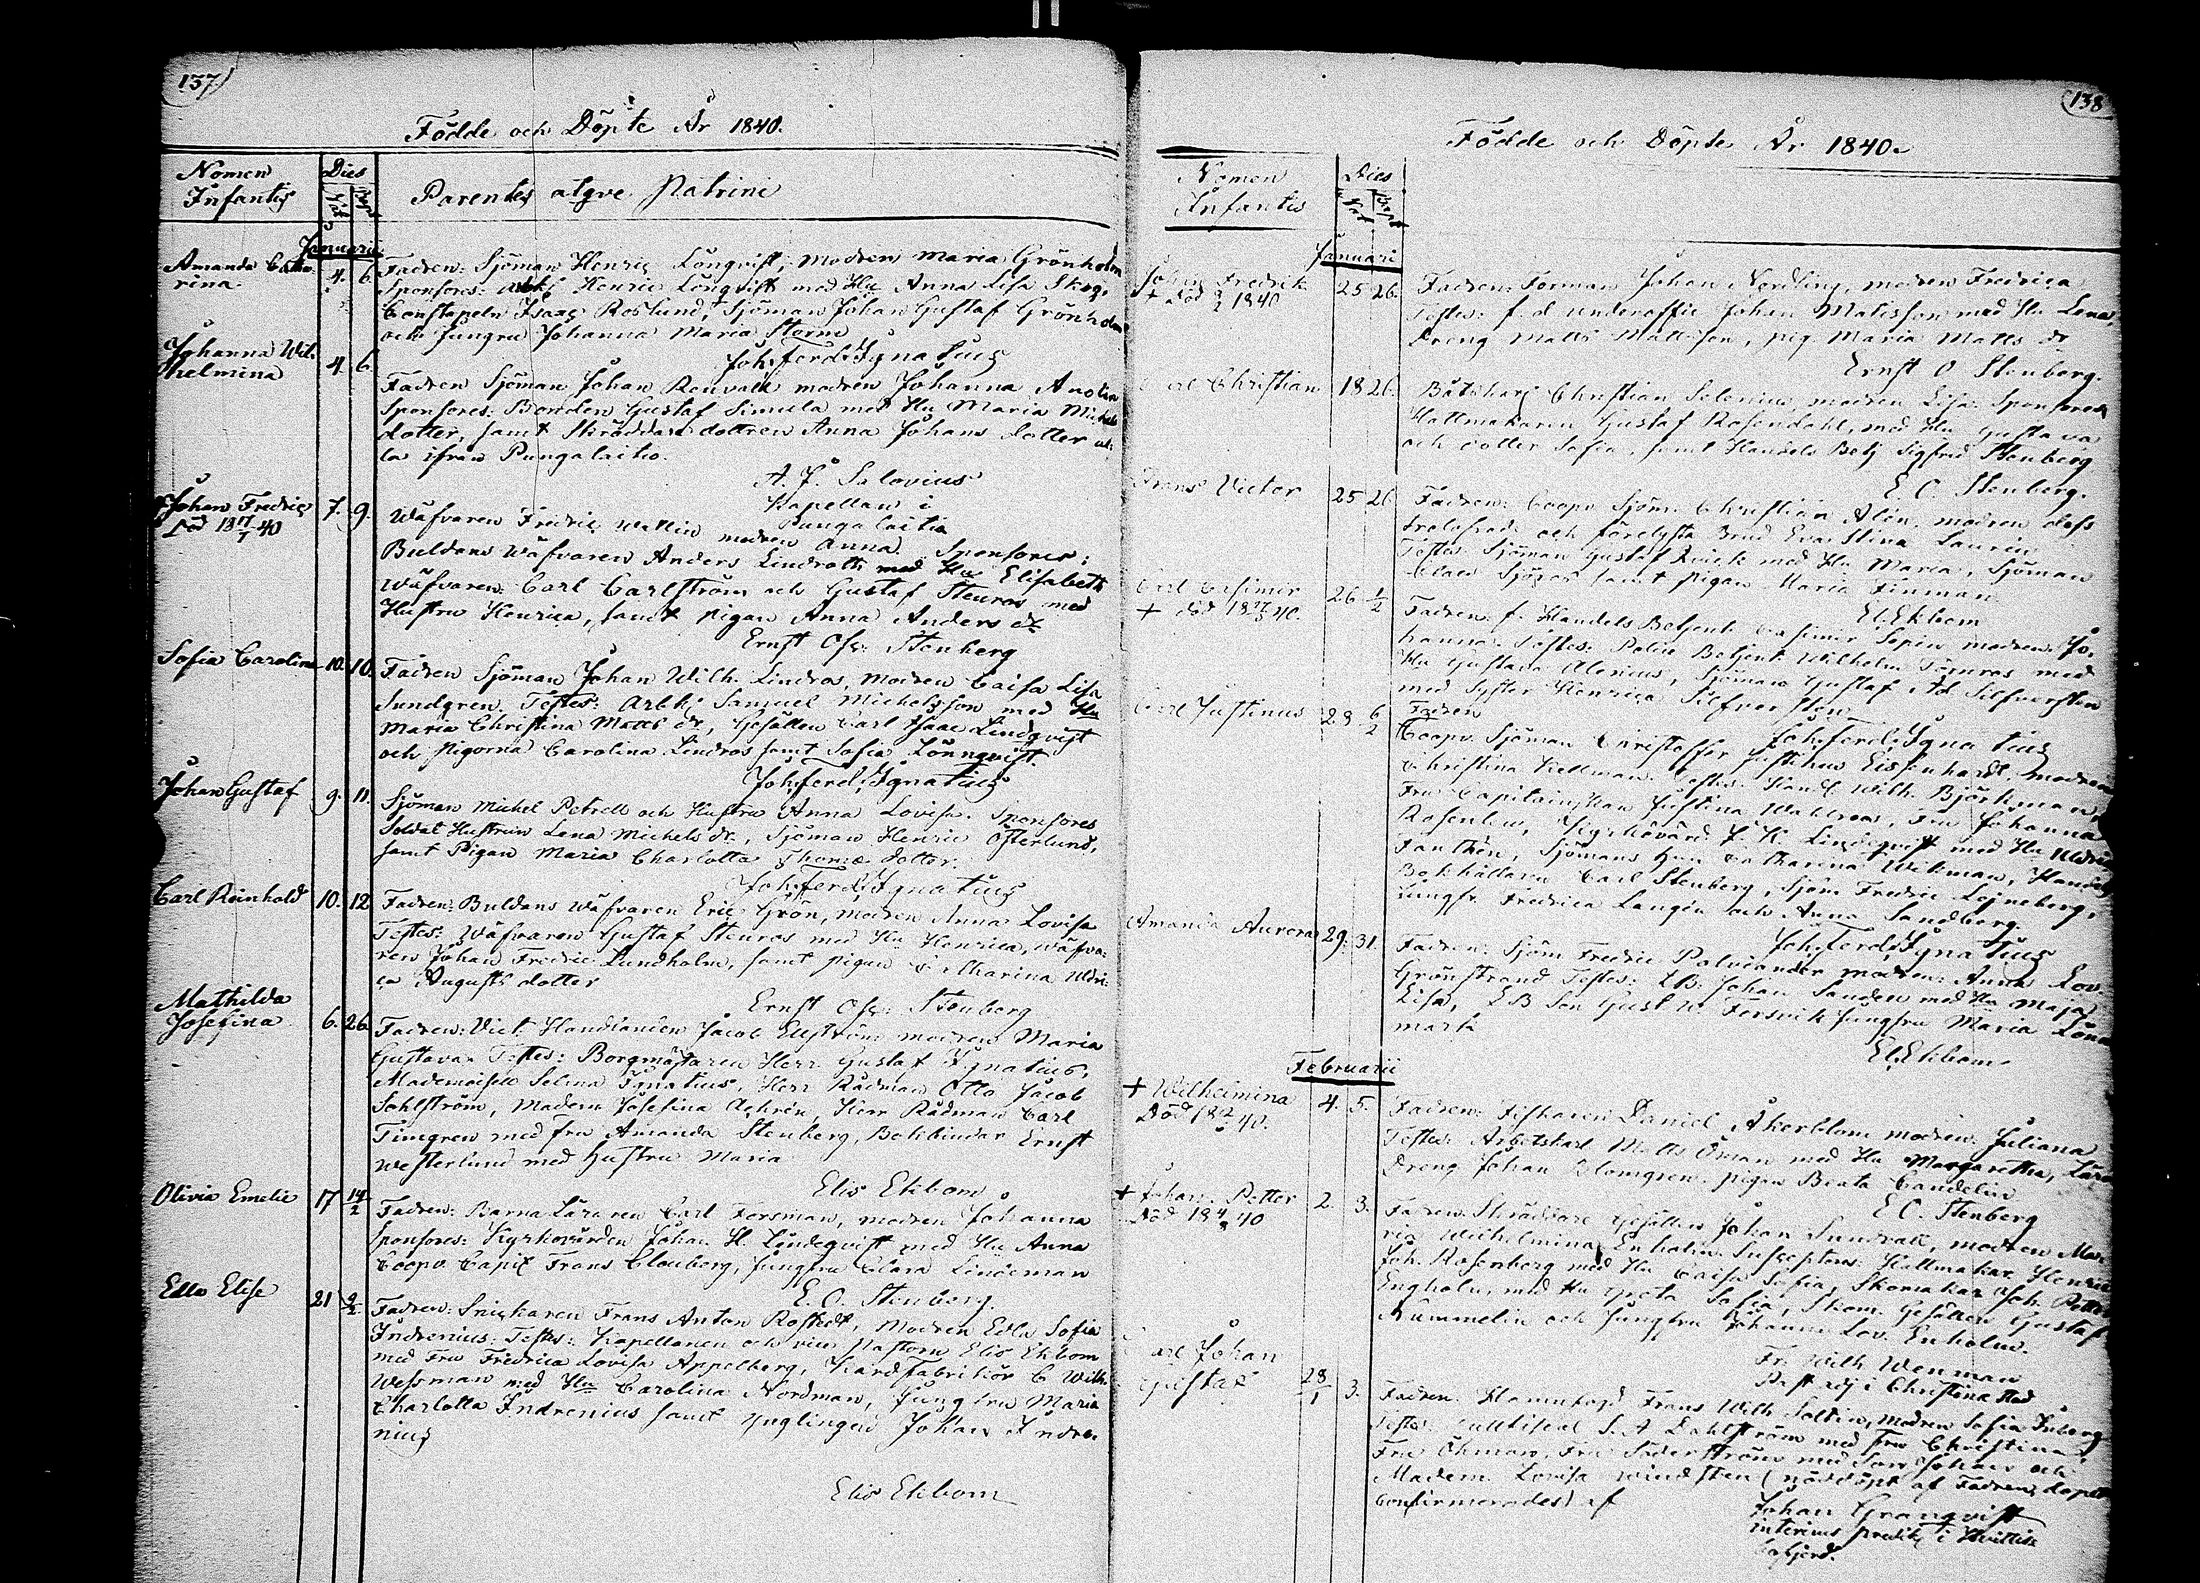 137
Födde och Döpte År 1840.
Nomen Infantis
Dies
Parentes atqve Patrini
Januarii
Amanda Catharina. 4. 6.
Fadren: Sjöman Henric Lönqvist, modren Maria Grönholm
Sponsores: Arbk Henric Lönqvist med Hu Anna Lisa Skog,
Constapeln Isaac Roslund, Sjöman Johan Gustaf Grönholm
och Jungru Johanna Maria Storm
Joh. Ferd. Ignatius
Johanna Wilhelmina 4. 6.
Fadren Sjöman Johan Rouvali modren Johanna
Sponsores: Bonden Gustaf Simula med Hu Maria Michels
dotter, samt Skräddare dottren Anna Johans dotter al-
la ifrån Pungalaitio.
A. J. Salovius
Kapellan i
Pungalaitio
Johan Fredric 7. 9.
Död 18 17/1 40
Wäfvaren Fredric Wallin modren Anna. Sponsores:
Buldans wäfvaren Anders Lindroth med Hu Elisabeth
Wäfvaren Carl Carlström och Gustaf Stenros med
Hustru Henrica, samt pigan Anna Anders dr
Ernst Osc. Stenberg
Sofia Carolina 10. 10.
Fadren Sjöman Johan Wilh. Lindros, modren Caisa Lisa
Sundgren. Testes: Arbk. Samuel Michelsson med Hu
Maria Christina Matts dr, Gesällen Carl Isaac Lindqvist
och pigorna Carolina Lindros samt Sofia Lönnqvist.
Joh. Ferd. Ignatius
Johan Gustaf 9. 11.
Sjöman Michel Petrell och Hustru Anna Lovisa. Sponsores
Soldat Hustrun Lena Michels dr, Sjöman Henric Österlund,
samt Pigan Maria Charlotta Thomæ dotter.
Joh. Ferd. Ignatius
Carl Reinhold 10. 12
Fadren: Buldans Wäfvaren Eric Grön, modren Anna Lovisa
Testes: Wäfvaren Gustaf Stenros med Hu Henrica, Wäfva-
ren Johan Fredric Lundholm, samt pigan Catharina Ulri-
ca Augusts dotter
Ernst Osc. Stenberg
Mathilda
Josefina 6. 26.
Fadren: Vict. Handlanden Jacob Ellström modren Maria
Gustava. Testes: Borgmästaren Herr Gustaf Ignatius,
Mademoiselle Selma Ignatius, Herr Rådman Otto Jacob
Sohlström, Madem. Josefina Achrén, Herr Rådman Carl
Timgren med fru Amanda Stenberg, Bokbindar Ernst
Westerlund med Hustru Maria
Elis Ekbom
Olivia Emelie 17 14/2
Fadren: BarnaLäraren Carl Forsman, modren Johanna
Sponsores: Kyrkovärden Johan H. Lindeqvist med Hu Anna
Coopv. Capit Frans Clouberg, Jungfru Clara Lindeman
E. O. Stenberg.
Edla Elise 21 2/2
Fadren: Snickaren Frans Anton Rostedt, Modren Edla Sofia
Indrenius: Testes: Kapellanen och vice Pastorn Elis Ekbom
med Fru Fredrica Lovisa Appelberg, Kardfabrikör C Wilh.
Wessman med Hu Carolina Nordman, Jungfru Maria
Charlotta Indrenius samt ynglingen Johan Indre-
nius
Elis Ekbom
138
Födde och Döpte År 1840.
Nomen Infantis
Dies
Januari
Johan Fredrik 25 26.
+ död 1840
Fadren: Forman Johan Nordling, modren Fredrica
Testes: f. d. underoffic Johan Matisson med Hu Lena,
Dreng Matts Mattsson, pig. Maria Matts dr
Ernst O Stenberg.
Christian 18 26.
Båtskarl Christian Selenius modren Lisa. Sponsores
Hattmakaren Gustaf Rosendahl, med Hu Gustava
och dotter Sofia, samt Handels Betj Sigfrid Stenberg
E. O. Stenberg.
Frans Victor 25 26
Fadren: Coopv. Sjöm. Christian Alén, modren dess
trolofvade och förelysta Brud Eva Stina Laurén
Testes: Sjöman Gustaf Kvick med Hu Maria, Sjöman
samt pigan Maria Finman
El. Ekbom
Carl Casimir 26 1/2
+ död
Fadren: f. Handels Betjent Casimir Sepin modren Jo-
hanna. Testes: Police Betjent Wilhelm Törnros med
Hu Gustava Alenius, Sjöman Gustaf Ad Silfversten
med Syster Henrica Silfversten
Joh. Ferd. Ignatius
Carl Justinus 28 6/2
Fadren
Coopv. Sjöman Christoffer Justinus Eisenhardt, modren
Christina Kellman. Testes: Hand Wilh. Björkman,
Fru Capitainskan Justina Wahlroos, Fru Johanna
Rosenlew, Kyrkovärd J. H. Lindeqvist med Hu Ulrica
Fanthén, Sjömans Hun Catharina Wikman, Handels
Bokhållarn Carl Stenberg, Sjöm Fredric Lejneberg,
Jungfr. Fredrica Langén och Anna Sandberg.
Joh. Ferd. Ignatius
Amanda Aurora 29. 31.
Fadren: Sjöm Fredric Palviander modren: Anna Lov.
Grönstrand Testes: Johan Sandén med Hu Maja
Lisa, Son Gust W. Forsvik Jungfru Maria Lönn
mark
El. Ekbom
Februarii
+ Wilhelmina 4. 5.
Död
Fadren: Fiskaren Daniel Åkerblom modren: Juliana
Testes: Arbetskarl Matts Öman med Hu Margaretha,
Dreng Johan Blomgren, pigan Beata Candelin
E O. Stenberg
+ Johan Petter 2. 3.
Död
Fadren: Skräddare Gesällen Johan Sundvall, modren Ma-
ria Wilhelmina Enholm. Susceptores: Hattmakar Henric
Joh. Rosenberg med Hu Caisa Sofia, Skomakar Joh. Petter
Engholm, med Hu Greta Sofia, Skom. Gesällen Gustaf
Nummelin och Jungfru Johanna Lov. Enholm.
Fr. Wilh Wenman
Past adj i Christinæ stad
Carl Johan
Gustaf 28/1 3.
Fadren: Hamnfogd Frans Wilh Soldin, modren Sofia Enberg
Testes: S. A Dahlström med Fru Christina,
Fru Öhman, Fru Söderström med Son Johan och
Madem. Lovisa Windsten (nöddöpt af Fadren, dopet
confirmerades) af
Johan Granqvist
interims predik i Hvittis
bofjerd.